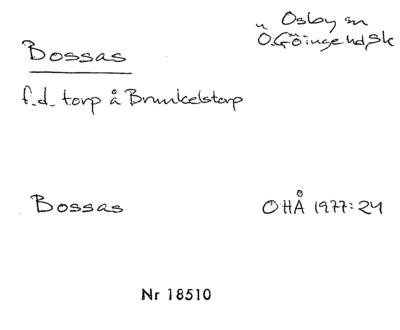 Osby sn
Bossas
Ö.Göinge hd, Sk
f.d. torp å Brunkelstorp
Bossas
OHÅ 1977:24
Nr 18510